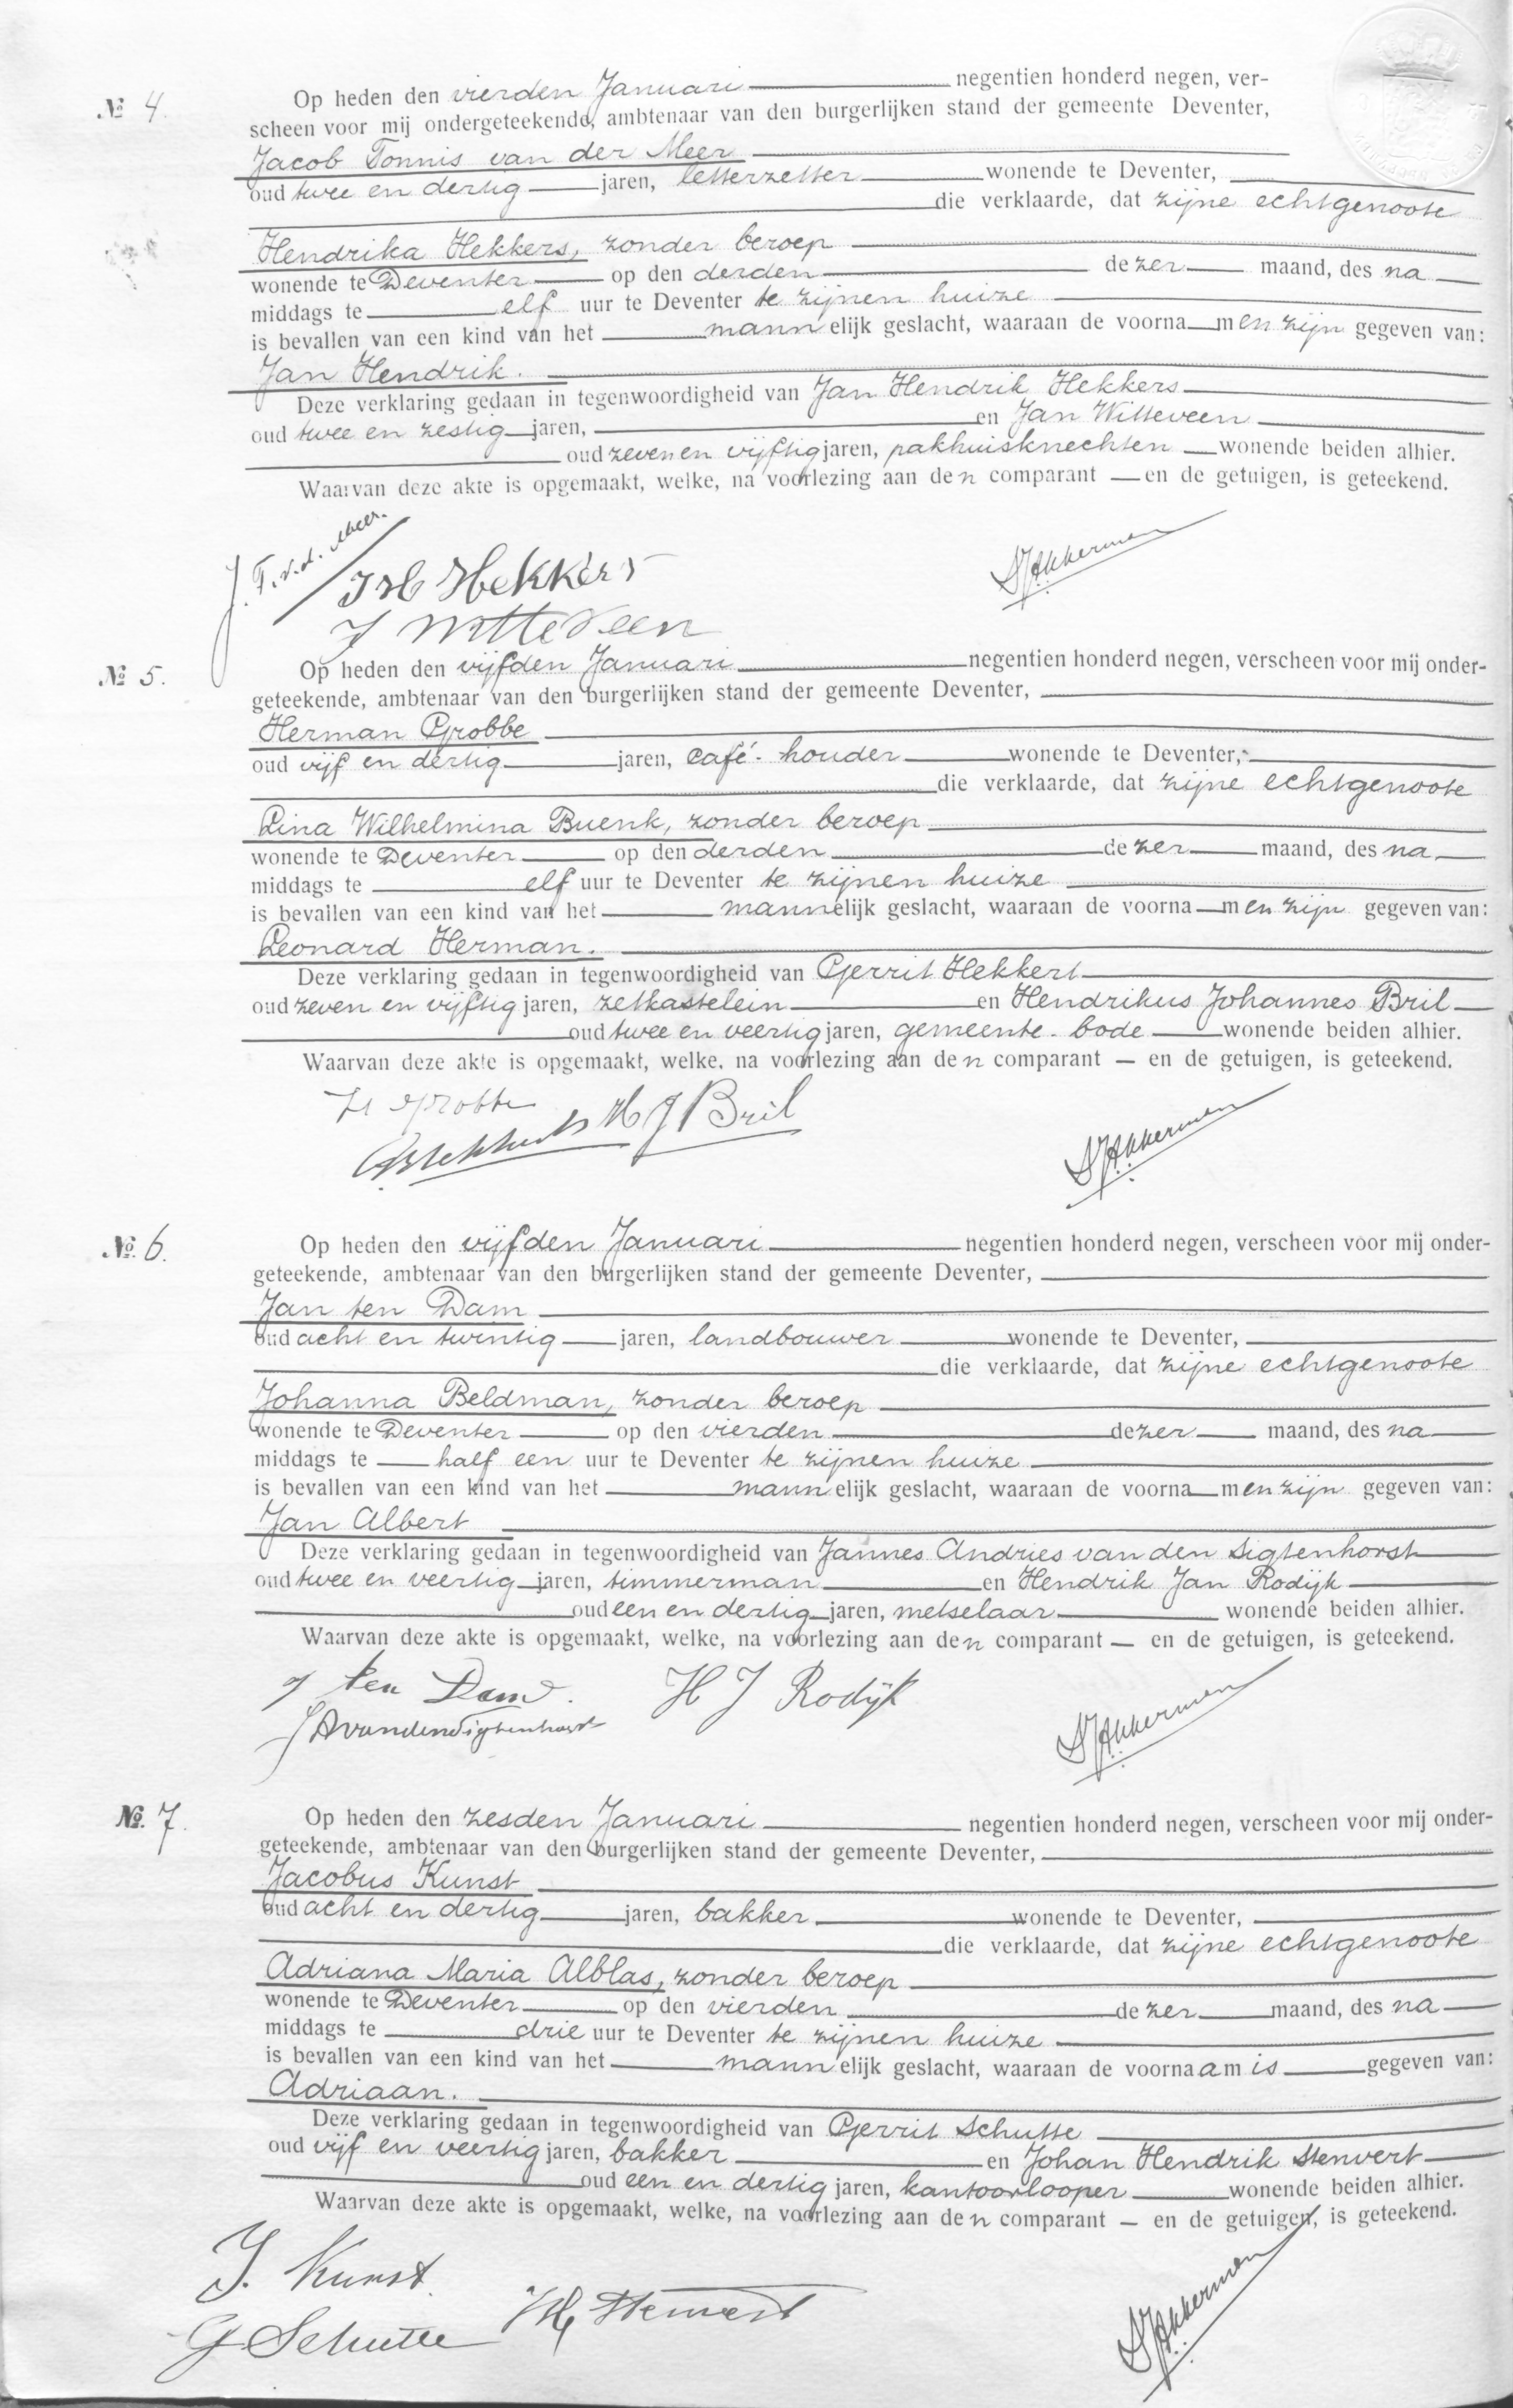 № 4.
Op heden den vierden Januari negentien honderd negen, ver-
scheen voor mij ondergeteekende, ambtenaar van den burgerlijken stand der gemeente Deventer,
Jacob Tonnis van der Meer
oud twee en dertig jaren, letterzetter wonende te Deventer,
die verklaarde, dat zijne echtgenoote
Hendrika Hekkers, zonder beroep
wonende te Deventer op den derden dezer maand, des na
middags te elf uur te Deventer te zijnen huize
is bevallen van een kind van het mannelijk geslacht, waaraan de voornamen zijn gegeven van:
Jan Hendrik.
Deze verklaring gedaan in tegenwoordigheid van Jan Hendrik Hekkers
oud twee en zestig jaren, en Jan Witteveen
oud zeven en vijftig jaren, pakhuisknechten wonende beiden alhier.
Waarvan deze akte is opgemaakt, welke, na voorlezing aan den comparant en de getuigen, is geteekend.
J. T. v. d. Meer.
JH Hekkers
J Witteveen
Akkerman
№ 5.
Op heden den vijfden Januari negentien honderd negen, verscheen voor mij onder-
geteekende, ambtenaar van den burgerlijken stand der gemeente Deventer,
Herman Grobbe
oud vijf en dertig jaren, café-houder wonende te Deventer,
die verklaarde, dat zijne echtgenoote
Lina Wilhelmina Buenk, zonder beroep
wonende te Deventer op den derden dezer maand, des na
middags te elf uur te Deventer te zijnen huize
is bevallen van een kind van het mannelijk geslacht, waaraan de voornamen zijn gegeven van:
Leonard Herman.
Deze verklaring gedaan in tegenwoordigheid van Gerrit Hekkert
oud zeven en vijftig jaren, zetkastelein en Hendrikus Johannes Bril
oud twee en veertig jaren, gemeente-bode wonende beiden alhier.
Waarvan deze akte is opgemaakt, welke, na voorlezing aan den comparant — en de getuigen, is geteekend.
H Grobbe
G Hekkert HJ Bril
Akkerman
№ 6.
Op heden den vijfden Januari negentien honderd negen, verscheen voor mij onder-
geteekende, ambtenaar van den burgerlijken stand der gemeente Deventer,
Jan ten Dam
oud acht en twintig jaren, landbouwer wonende te Deventer,
die verklaarde, dat zijne echtgenoote
Johanna Beldman, zonder beroep
wonende te Deventer op den vierden dezer maand, des na
middags te half een uur te Deventer te zijnen huize
is bevallen van een kind van het mannelijk geslacht, waaraan de voornamen zijn gegeven van:
Jan Albert
Deze verklaring gedaan in tegenwoordigheid van Jannes Andries van den Sigtenhorst
oud twee en veertig jaren, timmerman en Hendrik Jan Rodijk
oud een en dertig jaren, metselaar wonende beiden alhier.
Waarvan deze akte is opgemaakt, welke, na voorlezing aan den comparant — en de getuigen, is geteekend.
J ten Dam. H J Rodijk
JA van den Sigtenhorst
Akkerman
№. 7.
Op heden den zesden Januari negentien honderd negen, verscheen voor mij onder-
geteekende, ambtenaar van den burgerlijken stand der gemeente Deventer,
Jacobus Kunst
oud acht en dertig jaren, bakker wonende te Deventer,
die verklaarde, dat zijne echtgenoote
Adriana Maria Alblas, zonder beroep
wonende te Deventer op den vierden dezer maand, des na
middags te drie uur te Deventer te zijnen huize
is bevallen van een kind van het mannelijk geslacht, waaraan de voornaam is gegeven van:
Adriaan.
Deze verklaring gedaan in tegenwoordigheid van Gerrit Schutte
oud vijf en veertig jaren, bakker en Johan Hendrik Stenvert
oud een en dertig jaren, kantoorlooper wonende beiden alhier.
Waarvan deze akte is opgemaakt, welke, na voorlezing aan den comparant — en de getuigen, is geteekend.
J. Kunst.
G Schutte JH Stenvert
Akkerman